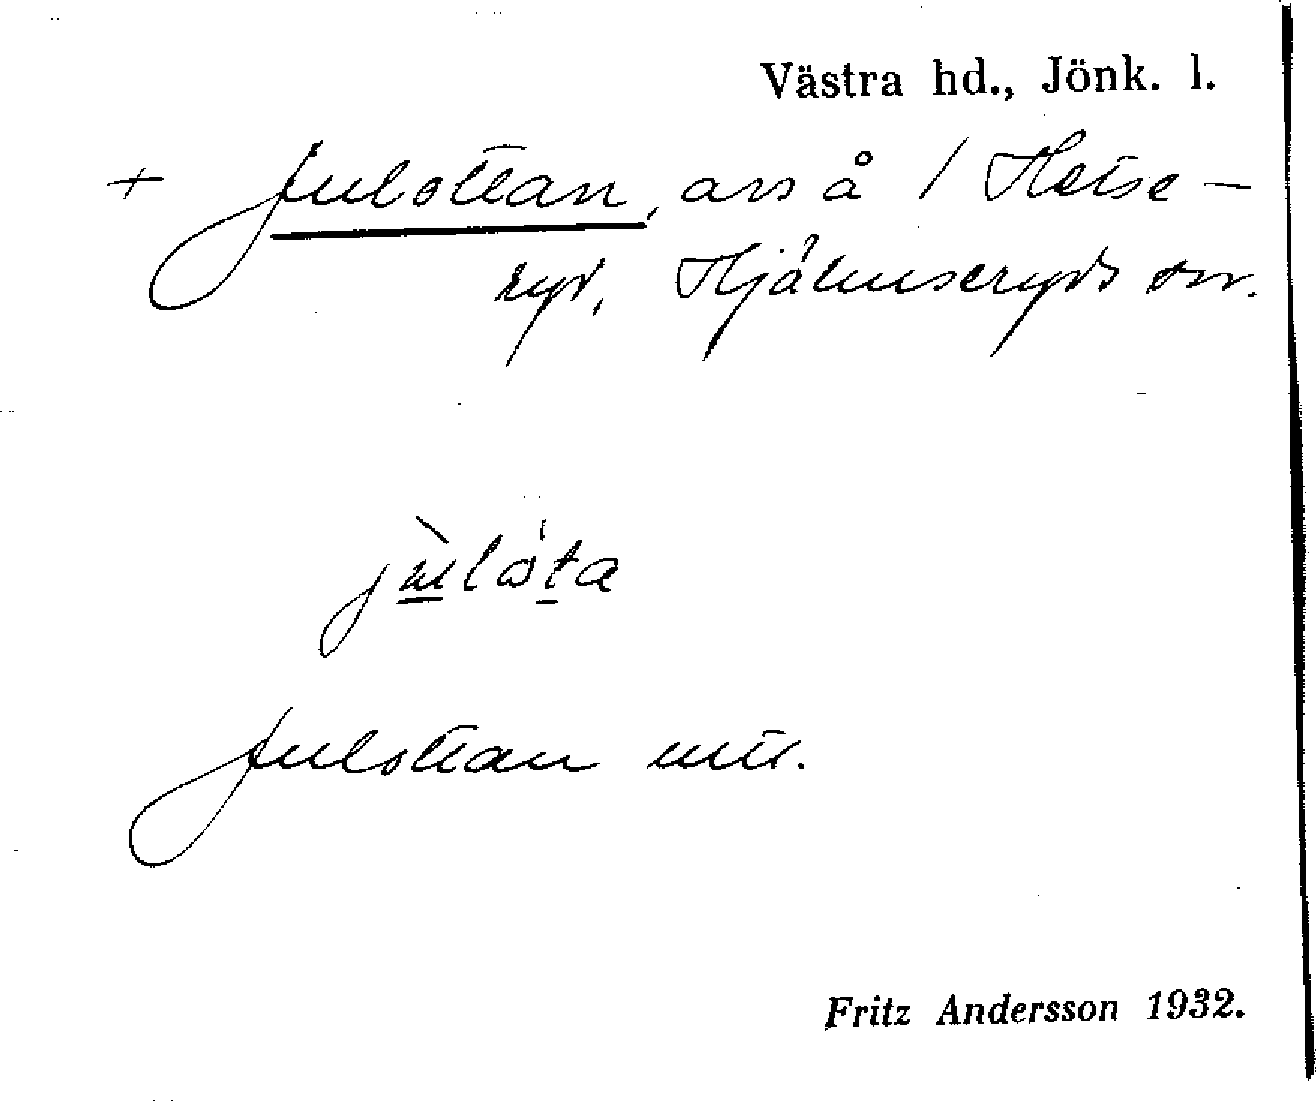 Västra hd., Jönk. l.
+ Julottan, avs å 1 Hetse-
ryd, Hjälmseryds sn.
julota
Julottan utt.
Fritz Andersson 1932.